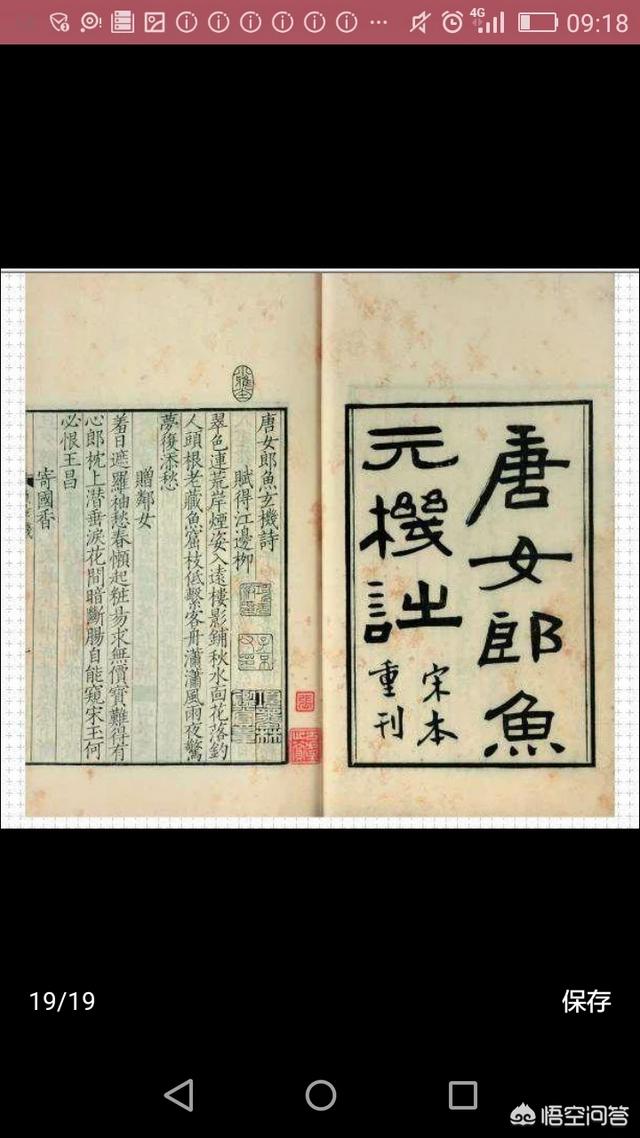 4G 09:18
唐女郎魚
元機詩
宋本
重刊
唐女郎魚玄機詩
賦得江邊柳
翠色連荒岸煙姿入遠樓影鋪秋水面花落釣
人頭根老藏魚窟枝低繫客舟瀟瀟風雨夜驚
夢復添愁
贈鄰女
羞日遮羅袖愁春懶起粧易求無價寶難得有
心郎枕上潛垂淚花間暗斷腸自能窺宋玉何
必恨王昌
寄國香
19/19
保存
悟空问答